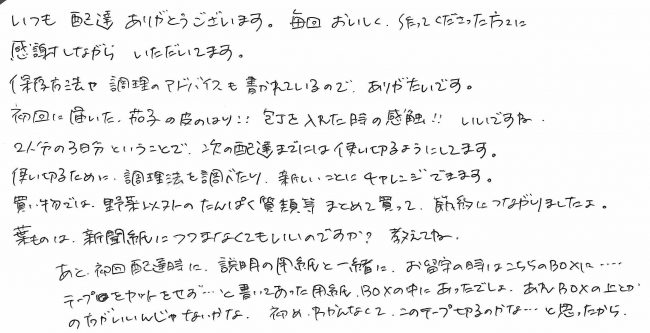 いつも 配達 ありがとうございます。毎回 おいしく、作ってくださった方々に
感謝しながら いただいてます。
保存方法や 調理のアドバイスも 書かれているので、ありがたいです。
初回に届いた、茄子の皮のはり!! 包丁を入れた時の感触!! いいですね.
2人分の3日分 ということで、次の配達までには 使い切るようにしてます。
使い切るために、調理法を調べたり、新しいことに チャレンジできます。
買い物では、野菜以外の たんぱく質類等 まとめて買って、節約につながりましたよ。
葉ものは、新聞紙につつまなくてもいいのですか? 教えてね.
あと、初回配達時に、説明の用紙と一緒に、お留守の時はこちらのBOXに‥‥
テープをカットをせず…と書いてあった用紙、BOXの中にあったでしょ。あれBOXの上とか
の方がいいんじゃないかな。初め、わかんなくて、このテープ切るのかな…と思ったから.